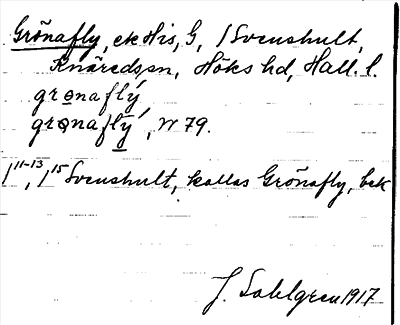 Grönafly, ek His, G, 1 Svenshult,
Knäredssn, Höks hd, Hall. l.
grønaflý
grønaflý, N 79.
1 11-13, 1 15 Svenshult, kallas Grönafly, bek
J. Sahlgren 1917